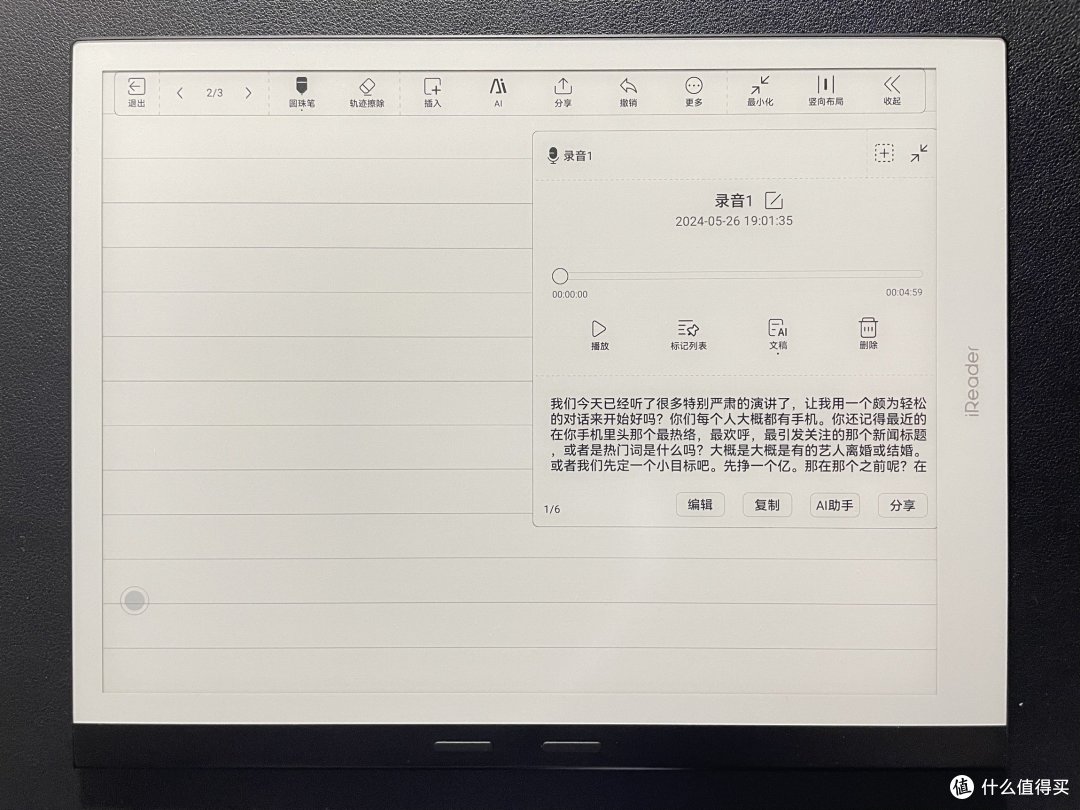 退出
2/3
圆珠笔
轨迹擦除
插入
AI
分享
撤销
更多
最小化
竖向布局
收起
录音1
录音1
2024-05-26 19:01:35
00:00:00
00:04:59
播放
标记列表
文稿
删除
我们今天已经听了很多特别严肃的演讲了，让我用一个颇为轻松
的对话来开始好吗？你们每个人大概都有手机。你还记得最近的
在你手机里头那个最热络，最欢呼，最引发关注的那个新闻标题
，或者是热门词是什么吗？大概是大概是有的艺人离婚或结婚。
或者我们先定一个小目标吧。先挣一个亿。那在那个之前呢？在
1/6
编辑
复制
AI助手
分享
iReader
值 什么值得买